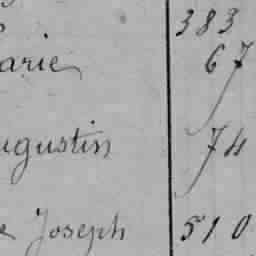 383
arie 67
ugustin 74
Joseph 510